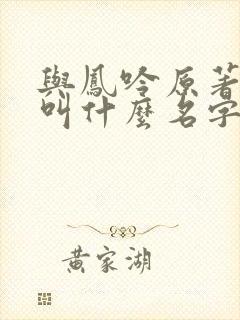 與鳳吟原著
叫什麼名字
黃家湖